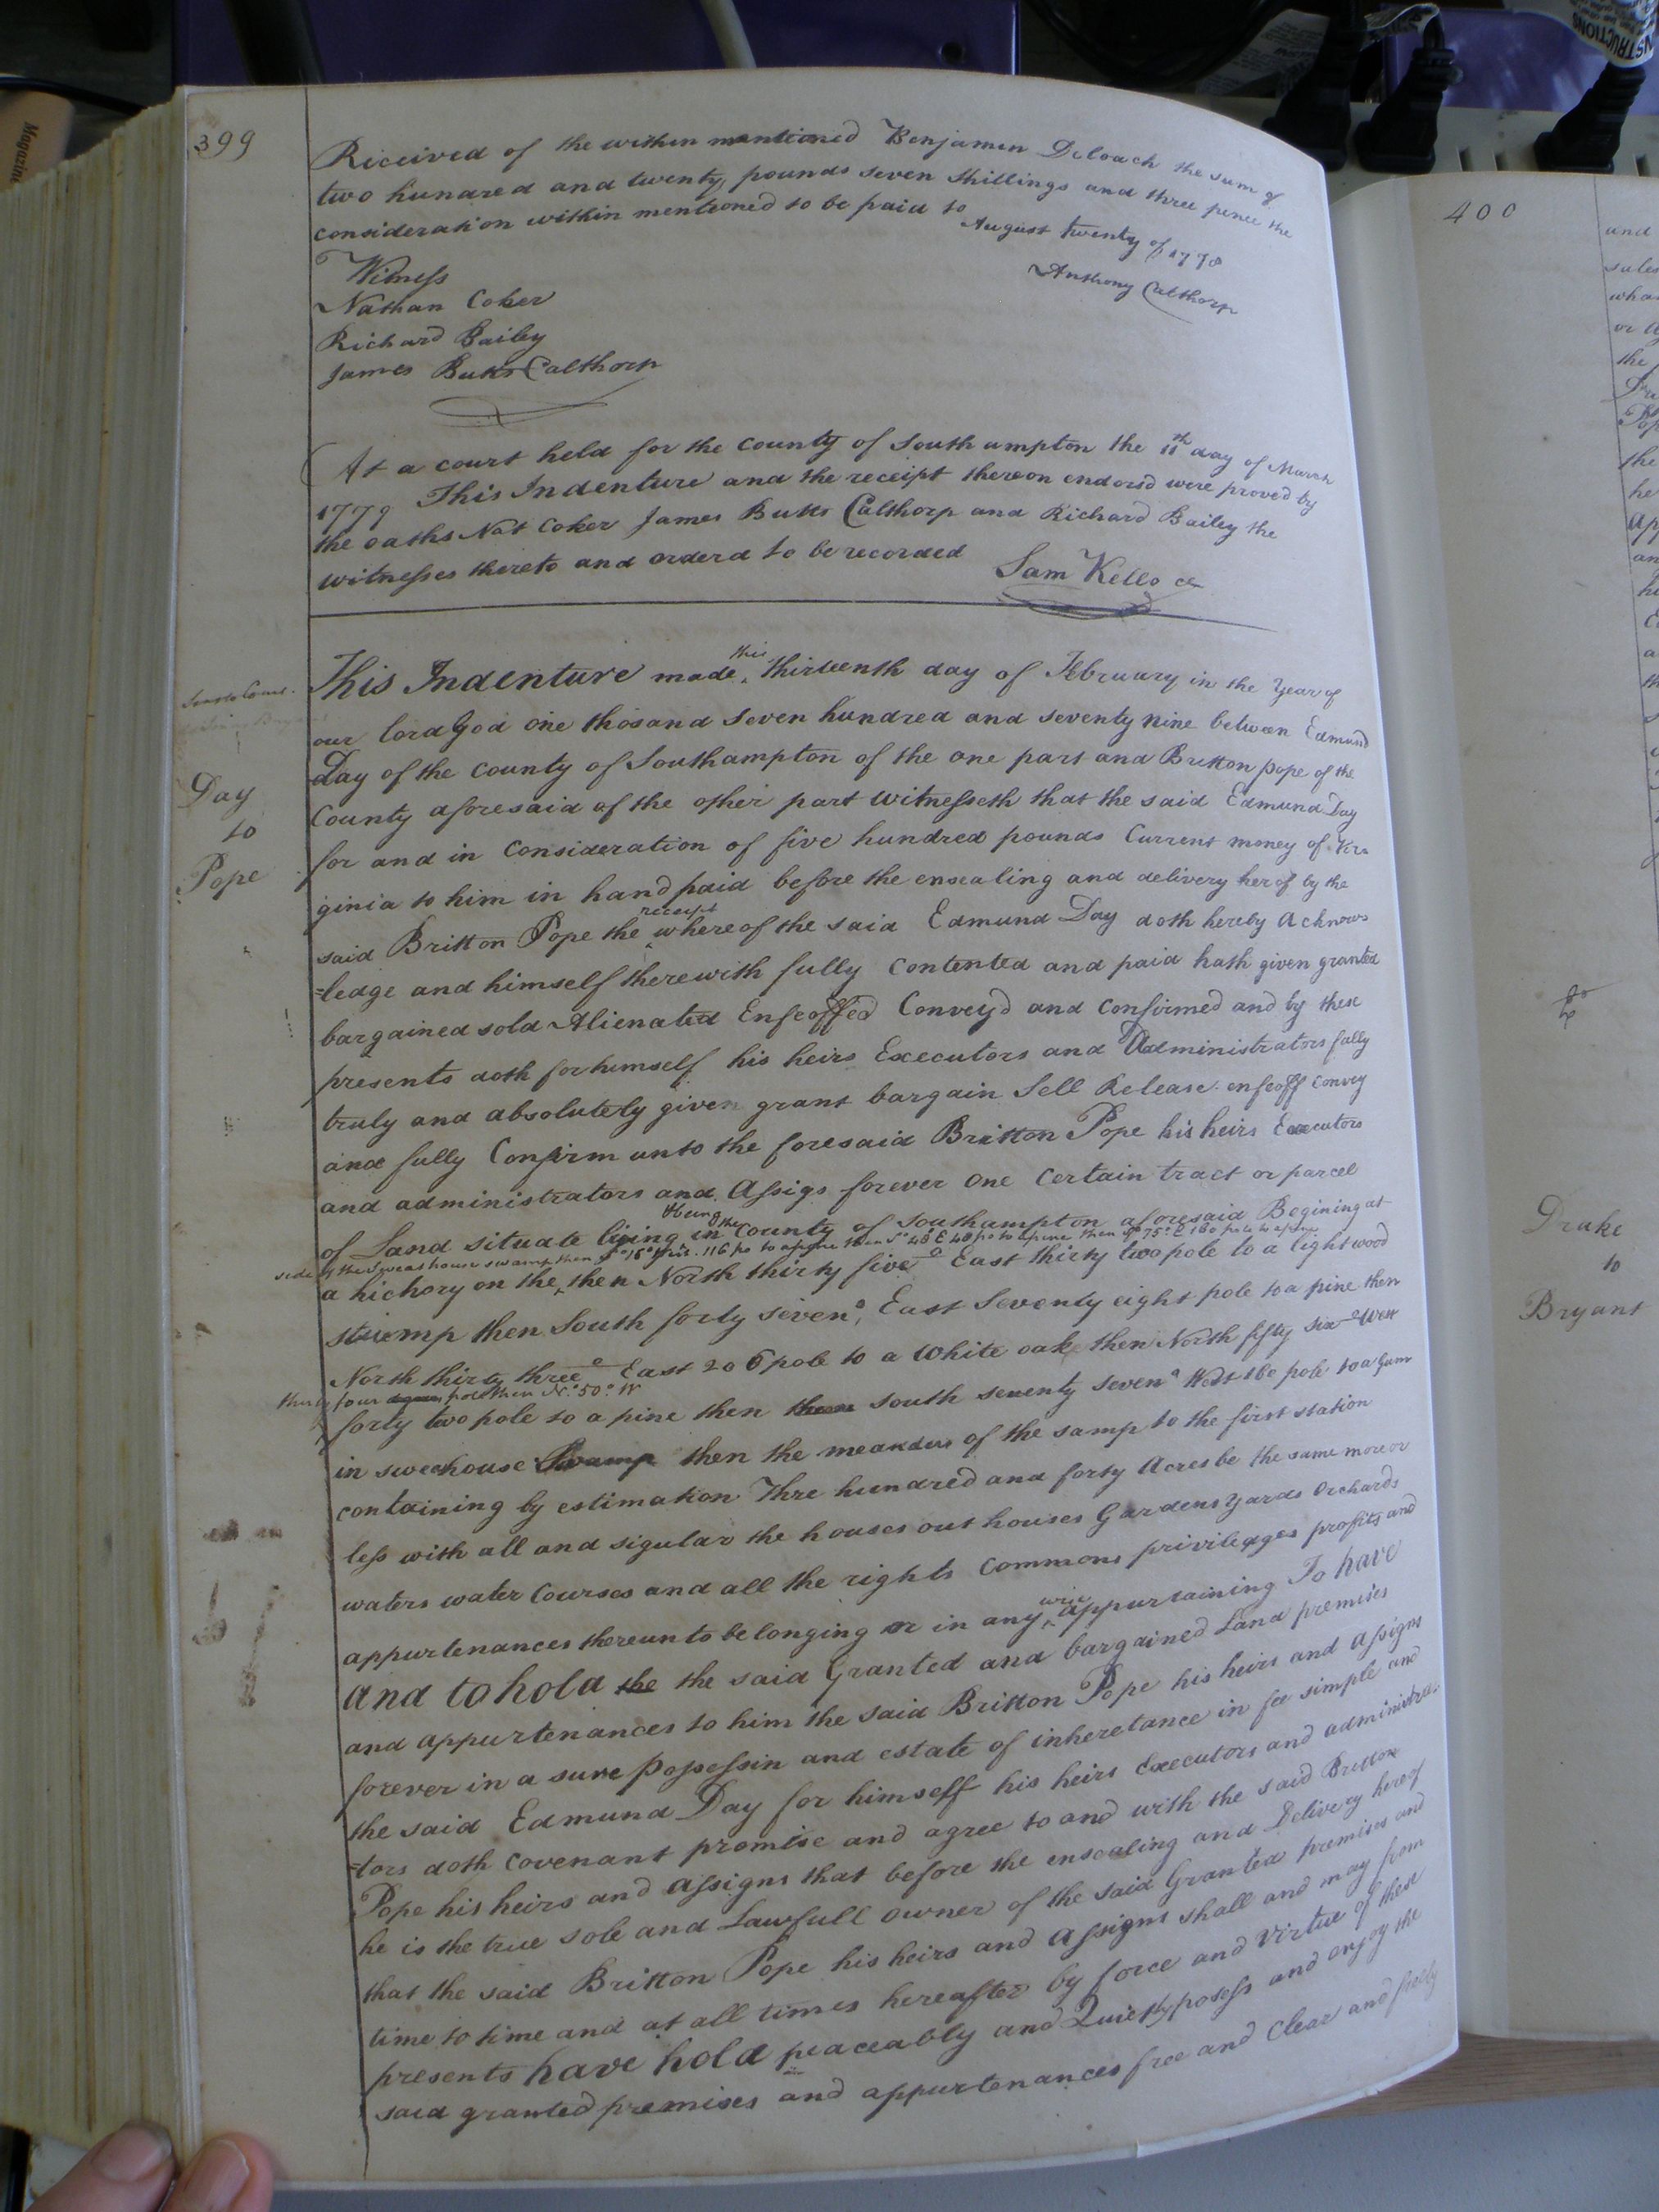 399
Received of the within mentioned Benjamin Deloach the sum of
two hundred and twenty pounds seven Shillings and three pence the
consideration within mentioned to be paid to
August twenty of 1778
Anthony Calthorp
Witness
Nathan Coker
Richard Bailey
James Butts Calthorp
At a court held for the County of Southampton the 11th day of March
1779 This Indenture and the receipt thereon endorsd were proved by
the oaths Nat Coker James Butts Calthorp and Richard Bailey the
witnesses thereto and orderd to be recorded
Sam Kello
Day
to
Pope
This Indenture made this thirteenth day of February in the Year of
our lord God one thosand Seven hundred and seventy nine between Edmund
Day of the county of Southampton of the one part and Britton pope of the
County aforesaid of the other part Witnesseth that the said Edmund Day
for and in Consideration of five hundred pounds Current money of Vir
ginia to him in hand paid before the ensealing and delivery herof by the
said Britton Pope the receipt whereof the said Edmund Day doth hereby Acknow
=ledge and himself therewith fully Contented and paid hath given granted
bargained sold Alienated Enfeoffed Convey'd and confirmed and by these
presents doth for himself his heirs Executors and Administrators fully
truly and absolutely given grant bargain Sell Release enfeoff Convey
and fully Confirm unto the foresaid Britton Pope his heirs Executors
and administrators and Assigs forever one Certain tract or parcel
of Land situate liying & being in the County of Southampton aforesaid Begining at
a hickory on the side of the Sweathouse swamp then then North thirty five° East thirty two pole to a lightwood
stump then South forty seven° East Seventy eight pole to a pine then
North thirty three° East 206 pole to a White oake then North fifty six° West
thirty four pole then N.° 50° W
forty two pole to a pine then south seventy seven° West 160 pole to a Gum
in sweethouse Swamp then the meanders of the samp to the first station
containing by estimation Thre hundred and forty Acres be the same more or
less with all and sigular the houses out houses Gardens yards Orchards
waters water Courses and all the rights Commons privileages profits and
appurtenances thereunto belonging or in any wise appurtaining To have
and to hold the the said Granted and bargained Land premises
and appurtenances to him the said Britton Pope his heirs and assigns
forever in a sure possessin and estate of inheretance in fee simple and
the said Edmund Day for himself his heirs Executors and administra
=tors doth Covenant promise and agree to and with the said Britton
Pope his heirs and assigns that before the ensealing and Delivery hereof
he is the true sole and Lawfull owner of the said Granted premises and
that the said Britton Pope his heirs and assigns shall and may from
time to time and at all times hereafter by force and virtue of these
presents have hold peaceably and Quietly posess and enjoy the
said granted premises and appurtenances free and Clear and freely
400
Drake
to
Bryant